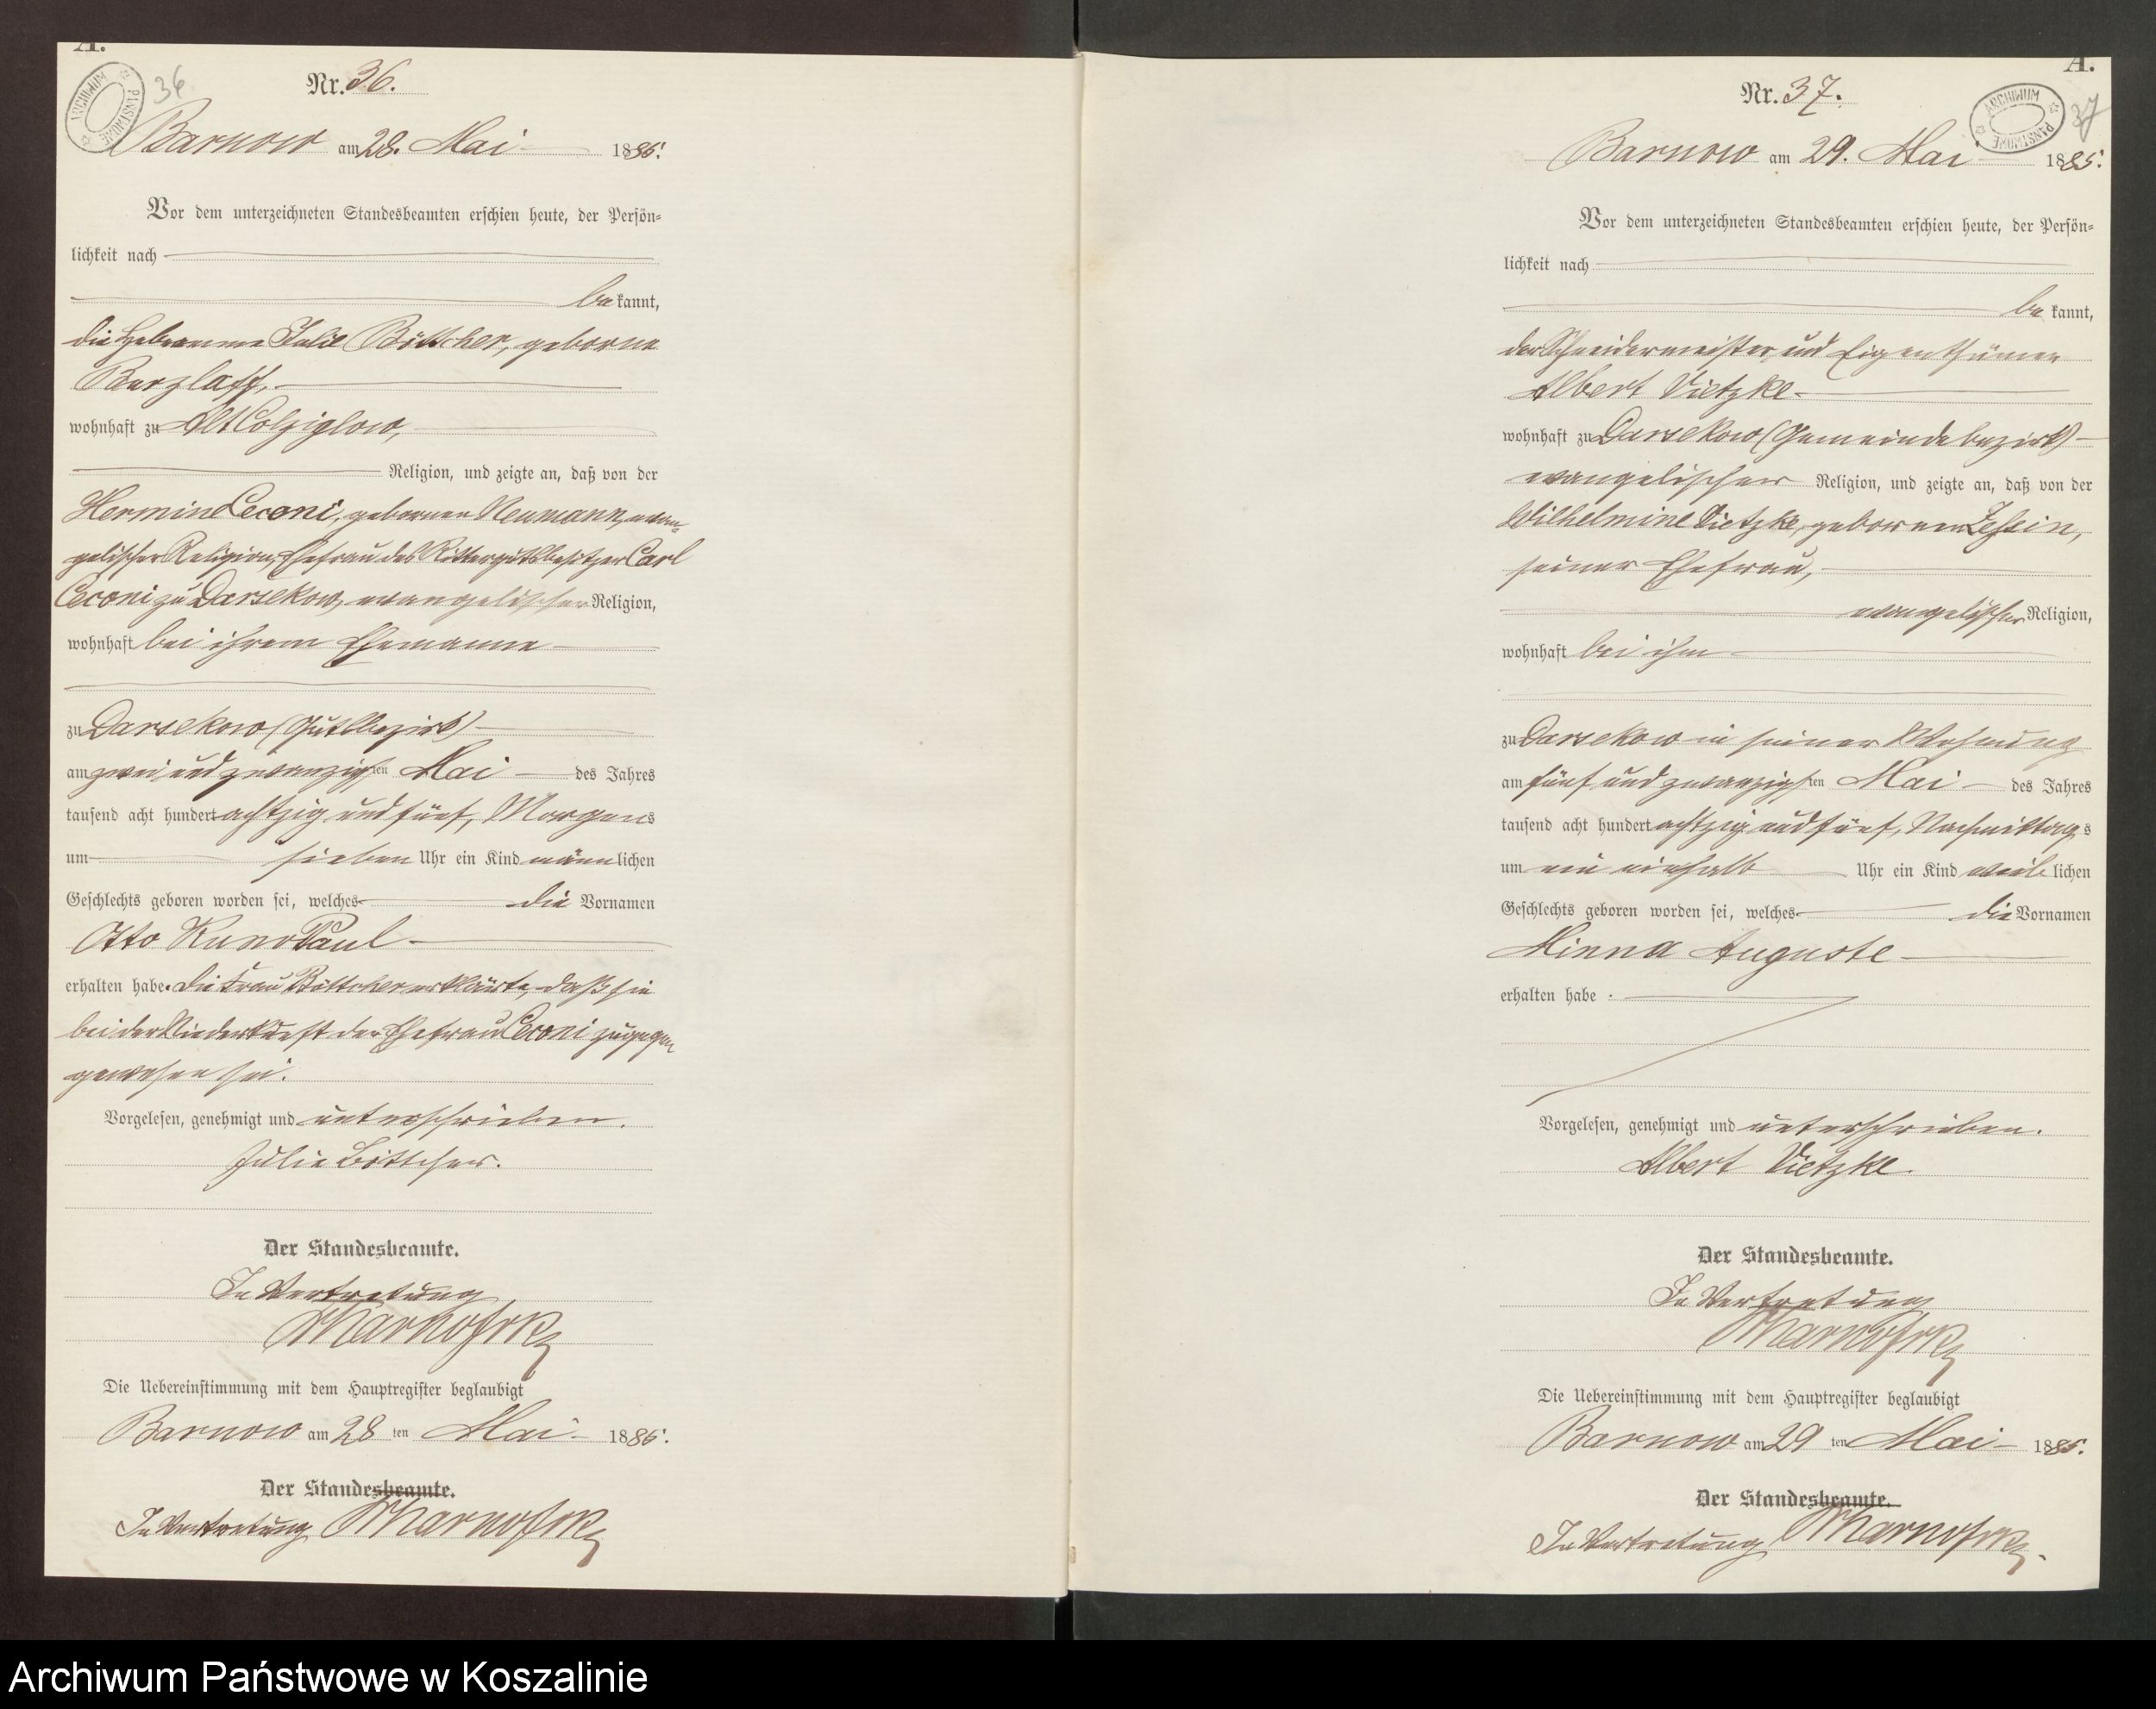 A.
ARCHIWUM PAŃSTWOWE
36
Nr. 36.
Barnow am 28. Mai 1885.
Vor dem unterzeichneten Standesbeamten erschien heute, der Persön-
lichkeit nach
be kannt,
die Hebeamme Julie Böttcher, geborne
Barzlaff,
wohnhaft zu Alt Colziglow,
Religion, und zeigte an, daß von der
Hermine Ceconi, geborner Neumann, evan-
gelischer Religion, Ehefrau des Rittergutsbesitzer Carl
Ceconi zu Darsekow, evangelischer Religion,
wohnhaft bei ihrem Ehemanne
zu Darsekow (Gutsbezirk)
am zwei und zwanzigsten Mai des Jahres
tausend acht hundert achtzig und fünf, Morgens
um sieben Uhr ein Kind männlichen
Geschlechts geboren worden sei, welches die Vornamen
Otto Kuno Paul
erhalten habe. Die Frau Böttcher erklärte, daß sie
bei der Niederkunft der Ehefrau Ceconi zugegen
gewesen sei.
Vorgelesen, genehmigt und unterschrieben.
Julie Böttcher.
Der Standesbeamte.
In Vertretung
Die Uebereinstimmung mit dem Hauptregister beglaubigt
Barnow am 28 ten Mai 1885.
Der Standesbeamte.
In Vertretung
A.
ARCHIWUM PAŃSTWOWE
37
Nr. 37.
Barnow am 29. Mai 1885.
Vor dem unterzeichneten Standesbeamten erschien heute, der Persön-
lichkeit nach
be kannt,
der Schneidermeister und Eigenthümer
Albert Vietzke
wohnhaft zu Darsekow (Gemeindebezirk)
evangelischer Religion, und zeigte an, daß von der
Wilhelmine Vietzke, gebornen Zessin,
seiner Ehefrau,
evangelischer Religion,
wohnhaft bei ihm
zu Darsekow in seiner Wohnung
am fünf und zwanzigsten Mai des Jahres
tausend acht hundert achtzig und fünf, Nachmittags
um ein einhalb Uhr ein Kind weiblichen
Geschlechts geboren worden sei, welches die Vornamen
Minna Auguste
erhalten habe.
Vorgelesen, genehmigt und unterschrieben.
Albert Vietzke.
Der Standesbeamte.
In Vertretung
Die Uebereinstimmung mit dem Hauptregister beglaubigt
Barnow am 29 ten Mai 1885.
Der Standesbeamte.
In Vertretung
Archiwum Państwowe w Koszalinie